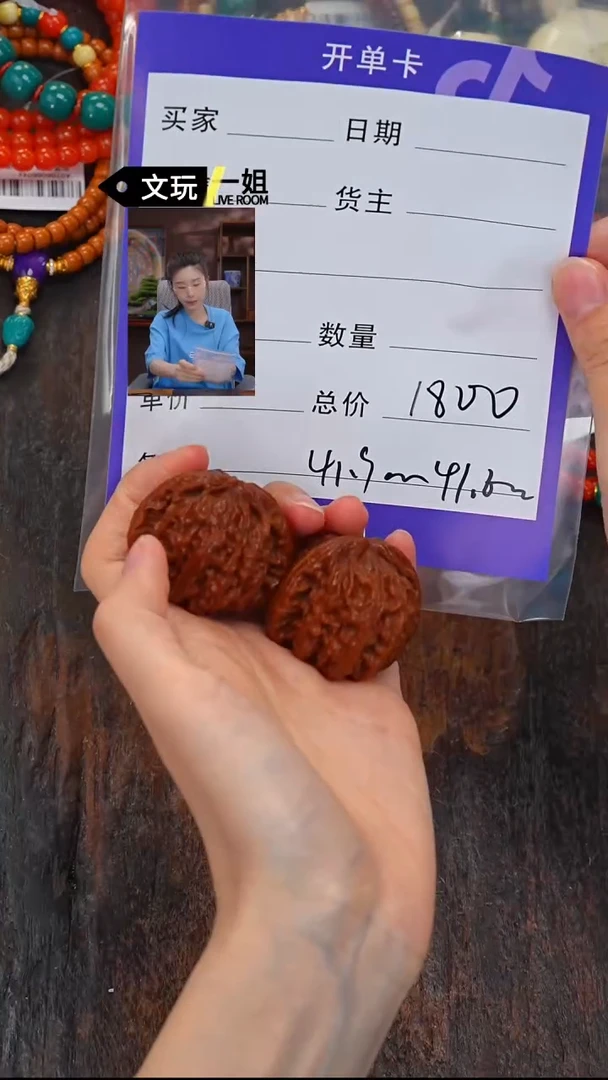 开单卡
买家 日期
文玩 一姐
LIVE ROOM
货主
数量
单价 总价 1800
41.9m 41.6m